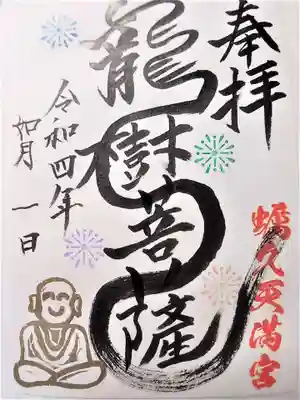 奉拝
龍樹菩薩
蠣久天満宮
令和四年
如月一日